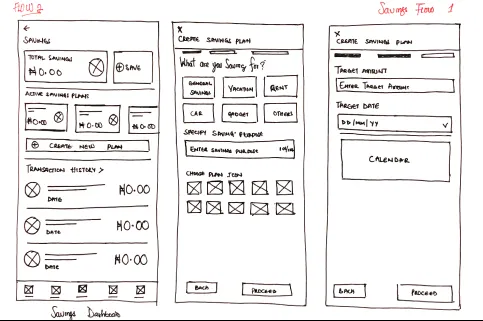 FLOW 2
Savings Flow 1
←
SAVINGS
TOTAL SAVINGS
₦0.00
⊕ SAVE
ACTIVE SAVINGS PLANS
₦0.00
₦0.00
⊕ CREATE NEW PLAN
TRANSACTION HISTORY >
₦0.00
DATE
₦0.00
DATE
₦0.00
DATE
Savings Dashboard
X
CREATE SAVINGS PLAN
What are you Saving for?
GENERAL SAVINGS
VACATION
RENT
CAR
GADGET
OTHERS
SPECIFY SAVING PURPOSE
ENTER SAVINGS PURPOSE
CHOOSE PLAN ICON
BACK
PROCEED
X
CREATE SAVINGS PLAN
TARGET AMOUNT
ENTER TARGET AMOUNT
TARGET DATE
DD/MM/YY
CALENDAR
BACK
PROCEED